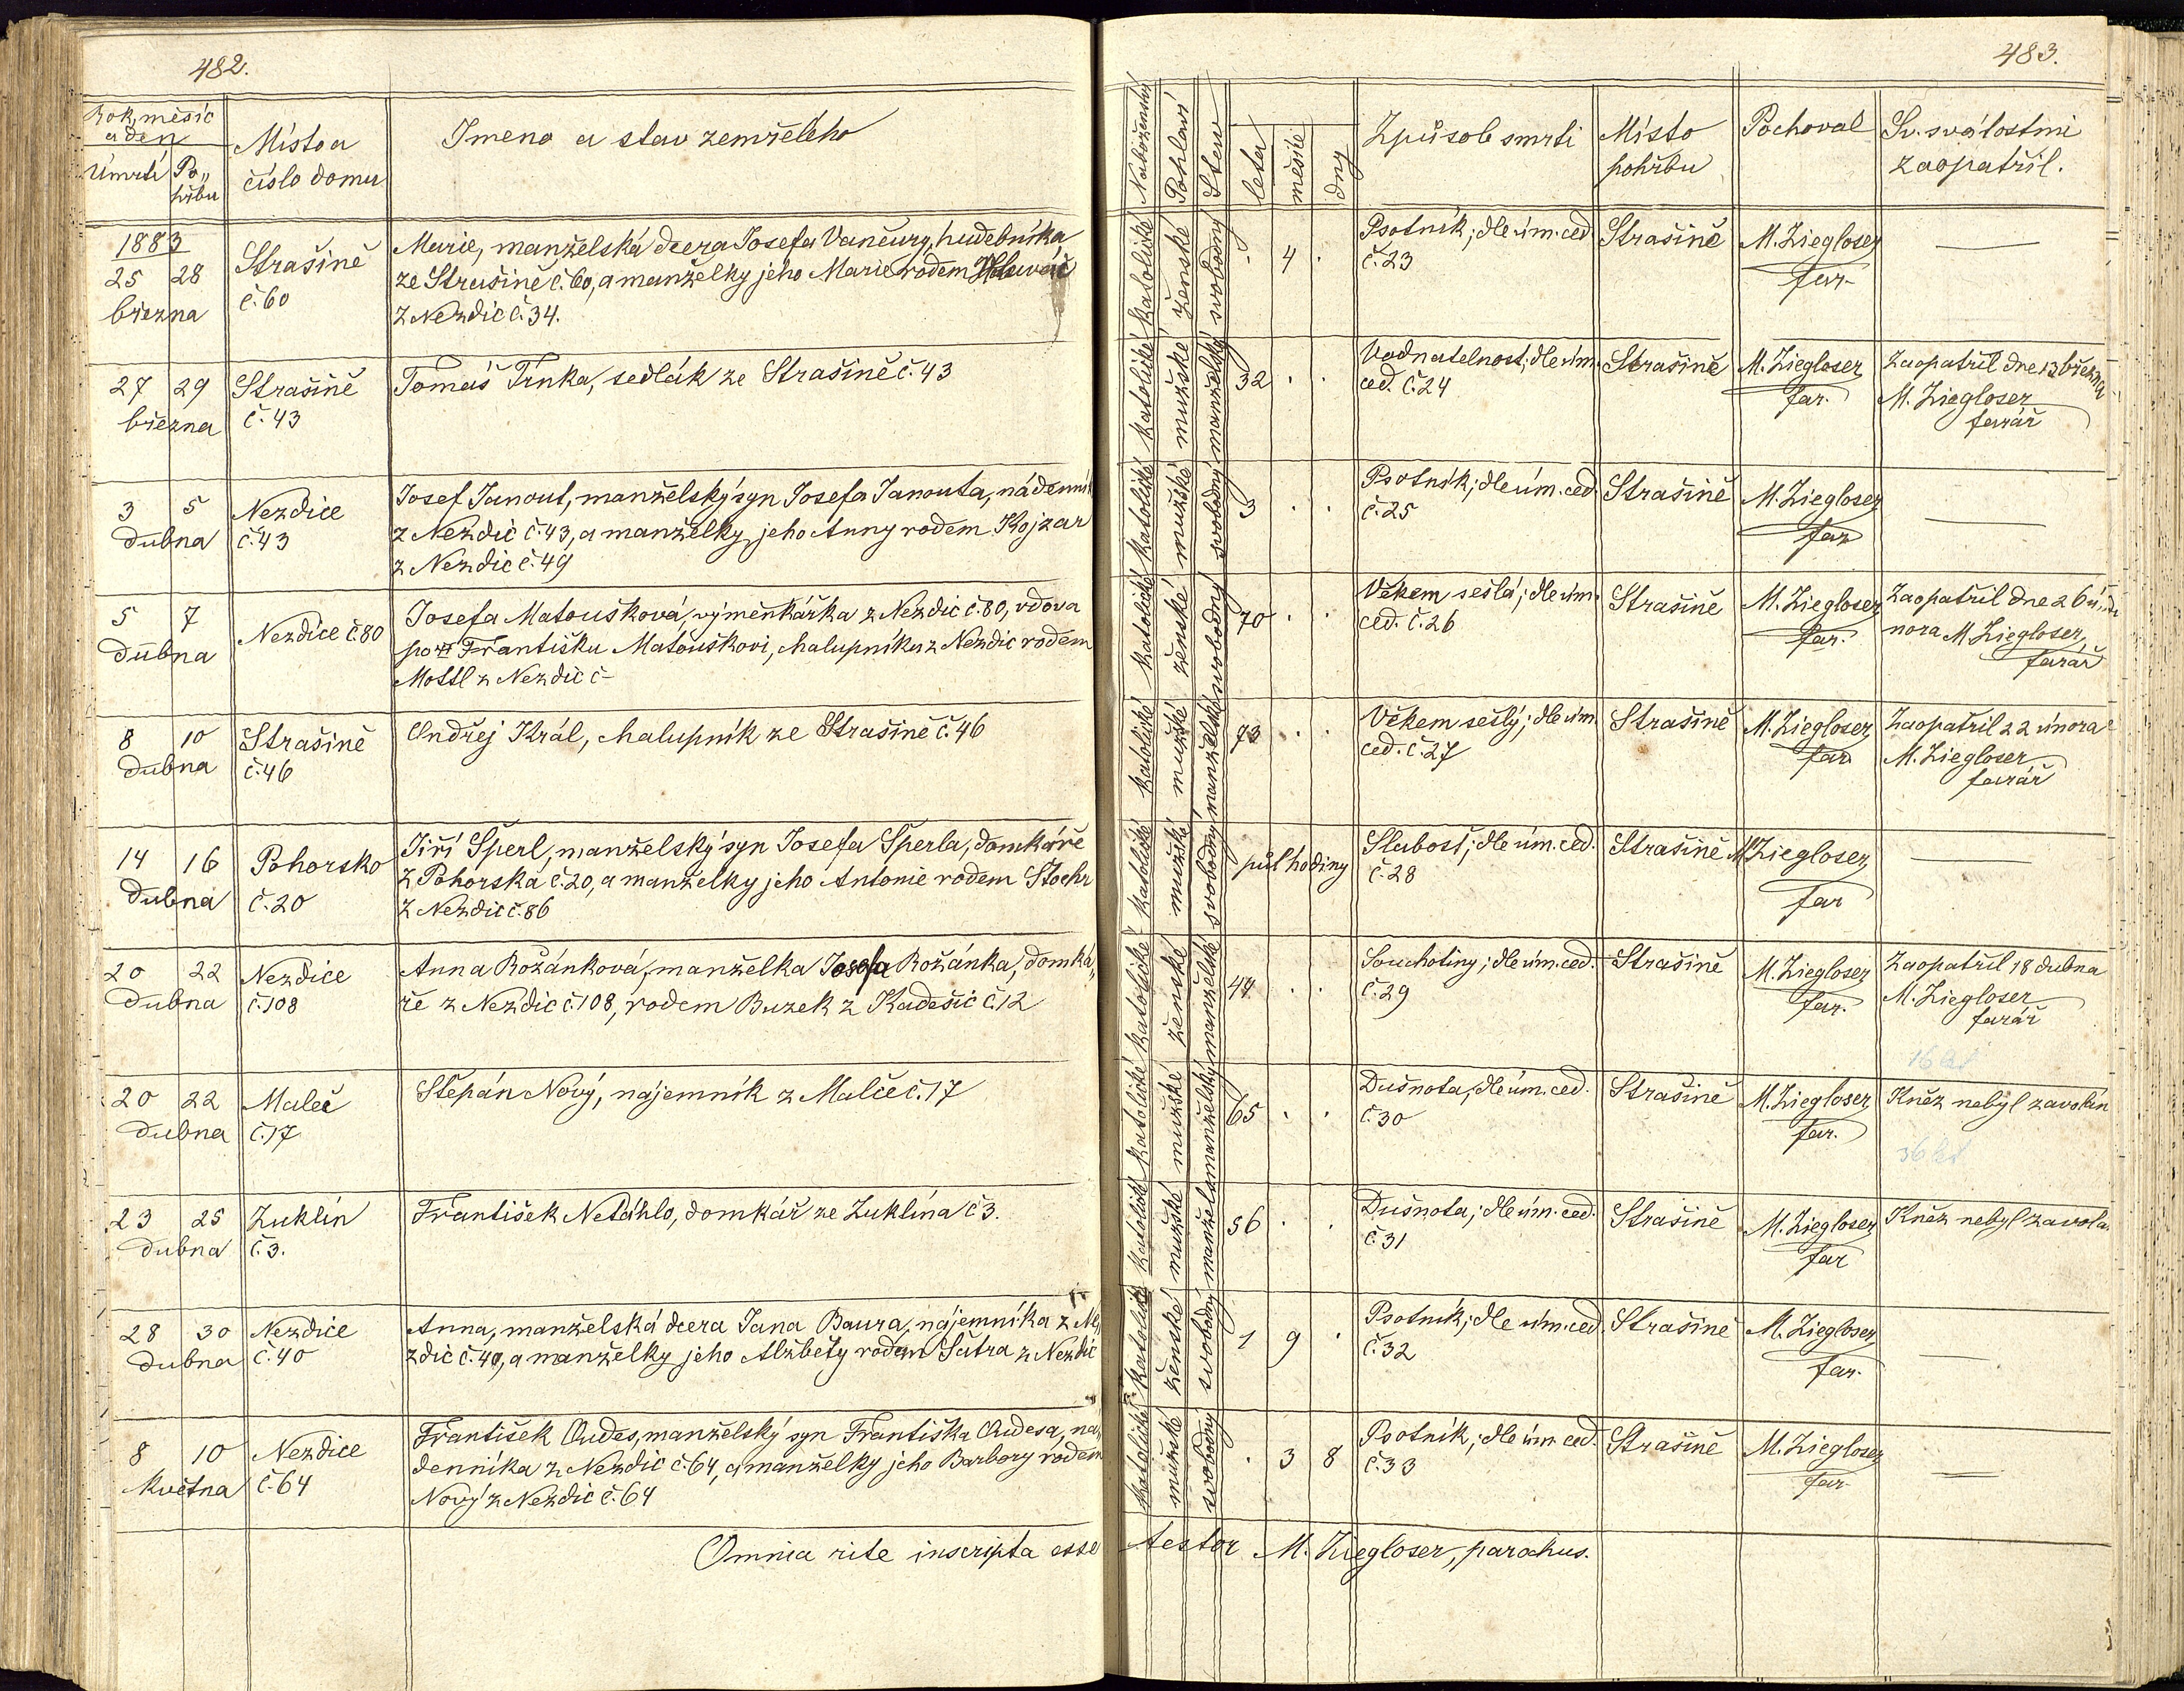 482.
Rok, měsíc
a den
Úmrtí
Po„
hřbu
Místo a
číslo domu
Jmeno a stav zemřelého
1883
25 28
března
Strašině
č. 60
Marie, manželská dcera Josefa Vančury, hudebníka
ze Strašině č. 60, a manželky jeho Marie rodem
z Nezdic č. 34.
27 29
března
Strašině
č. 43
Tomáš Trnka, sedlák ze Strašině č. 43
3 5
dubna
Nezdice
č. 43
Josef Janout, manželský syn Josefa Janouta, nádenník
z Nezdic č. 43, a manželky jeho Anny rodem Kojzar
z Nezdic č. 49
5 7
dubna
Nezdice č. 80
Josefa Matoušková, výměnkářka z Nezdic č. 80, vdova
po Františku Matouškovi, chalupníku z Nezdic rodem
Mottl z Nezdic č –
8 10
dubna
Strašině
č. 46
Ondřej Král, chalupník ze Strašině č. 46
14 16
dubna
Pohorsko
č. 20
Jiří Šperl, manželský syn Josefa Šperla, domkáře
z Pohorska č. 20, a manželky jeho Antonie rodem Stoehr
z Nezdic č. 86
20 22
dubna
Nezdice
č. 108
Anna Rožánková, manželka Josefa Rožánka, domká„
ře z Nezdic č. 108, rodem Buzek z Kadešic č. 12
20 22
dubna
Maleč
č. 17
Štěpán Nový, nájemník z Malče č. 17
23 25
dubna
Zuklín
č. 3.
František Netáhlo, domkář ze Zuklína č 3.
28 30
dubna
Nezdice
č. 40
Anna, manželská dcera Jana Baura, nájemníka z Ne„
zdic č. 40, a manželky jeho Alžběty rodem Šatra z Nezdic
8 10
května
Nezdice
č. 64
František Oudes, manželský syn Františka Oudesa, ná„
denníka z Nezdic č. 64, a manželky jeho Barbory rodem
Nový z Nezdic č. 64
Omnia rite inscripta esse
483.
Náboženství
Pohlaví
Stav
leta
měsíce
dny
Způsob smrti
Místo
pohřbu
Pochoval
Sv. svátostmi
zaopatřil.
katolické ženské svobodný · 4 ·
Psotník; dle úm. ced
č. 23
Strašině
M. Ziegloser
far.
—
katolické mužské manželský 32 · ·
Vodnatelnost; dle úm.
ced. č. 24
Strašině
M. Ziegloser
far.
Zaopatřil dne 13 března
M. Ziegloser
farář
katolické mužské svobodný 3 · ·
Psotník; dle úm. ced.
č. 25
Strašině
M. Ziegloser
far
—
katolické ženské svobodný 70 · ·
Věkem sešlá; dle úm.
ced. č. 26
Strašině
M. Ziegloser
far.
Zaopatřil dne 26 ú
nora M Ziegloser,
farář
katolické mužské manželské 73 · ·
Věkem sešlý; dle úm.
ced. č. 27
Strašině
M. Ziegloser
far
Zaopatřil 22 února
M. Ziegloser
farář
katolické mužské svobodný půl hodiny
Slabost; dle úm. ced.
č. 28
Strašině
M Ziegloser
far
—
katolické ženské manželské 44 · ·
Souchotiny; dle úm. ced.
č. 29
Strašině
M. Ziegloser
far.
Zaopatřil 18 dubna
M. Ziegloser
farář
katolické mužské manželský 65 · ·
Dušnota; dle úm. ced.
č. 30
Strašině
M. Ziegloser
far.
Kněz nebyl zavolán
katolické mužské 56 · ·
Dušnota; dle úm. ced.
č. 31
Strašině
M. Ziegloser
far
Kněz nebyl zavola
katolické ženské svobodný 1 9 ·
Psotník; dle úm. ced.
č. 32
Strašině
M. Ziegloser
far.
—
katolické mužské svobodný · 3 8
Psotník; dle úm. ced.
č. 33
Strašině
M. Ziegloser
far.
—
testor M. Ziegloser, parochus.